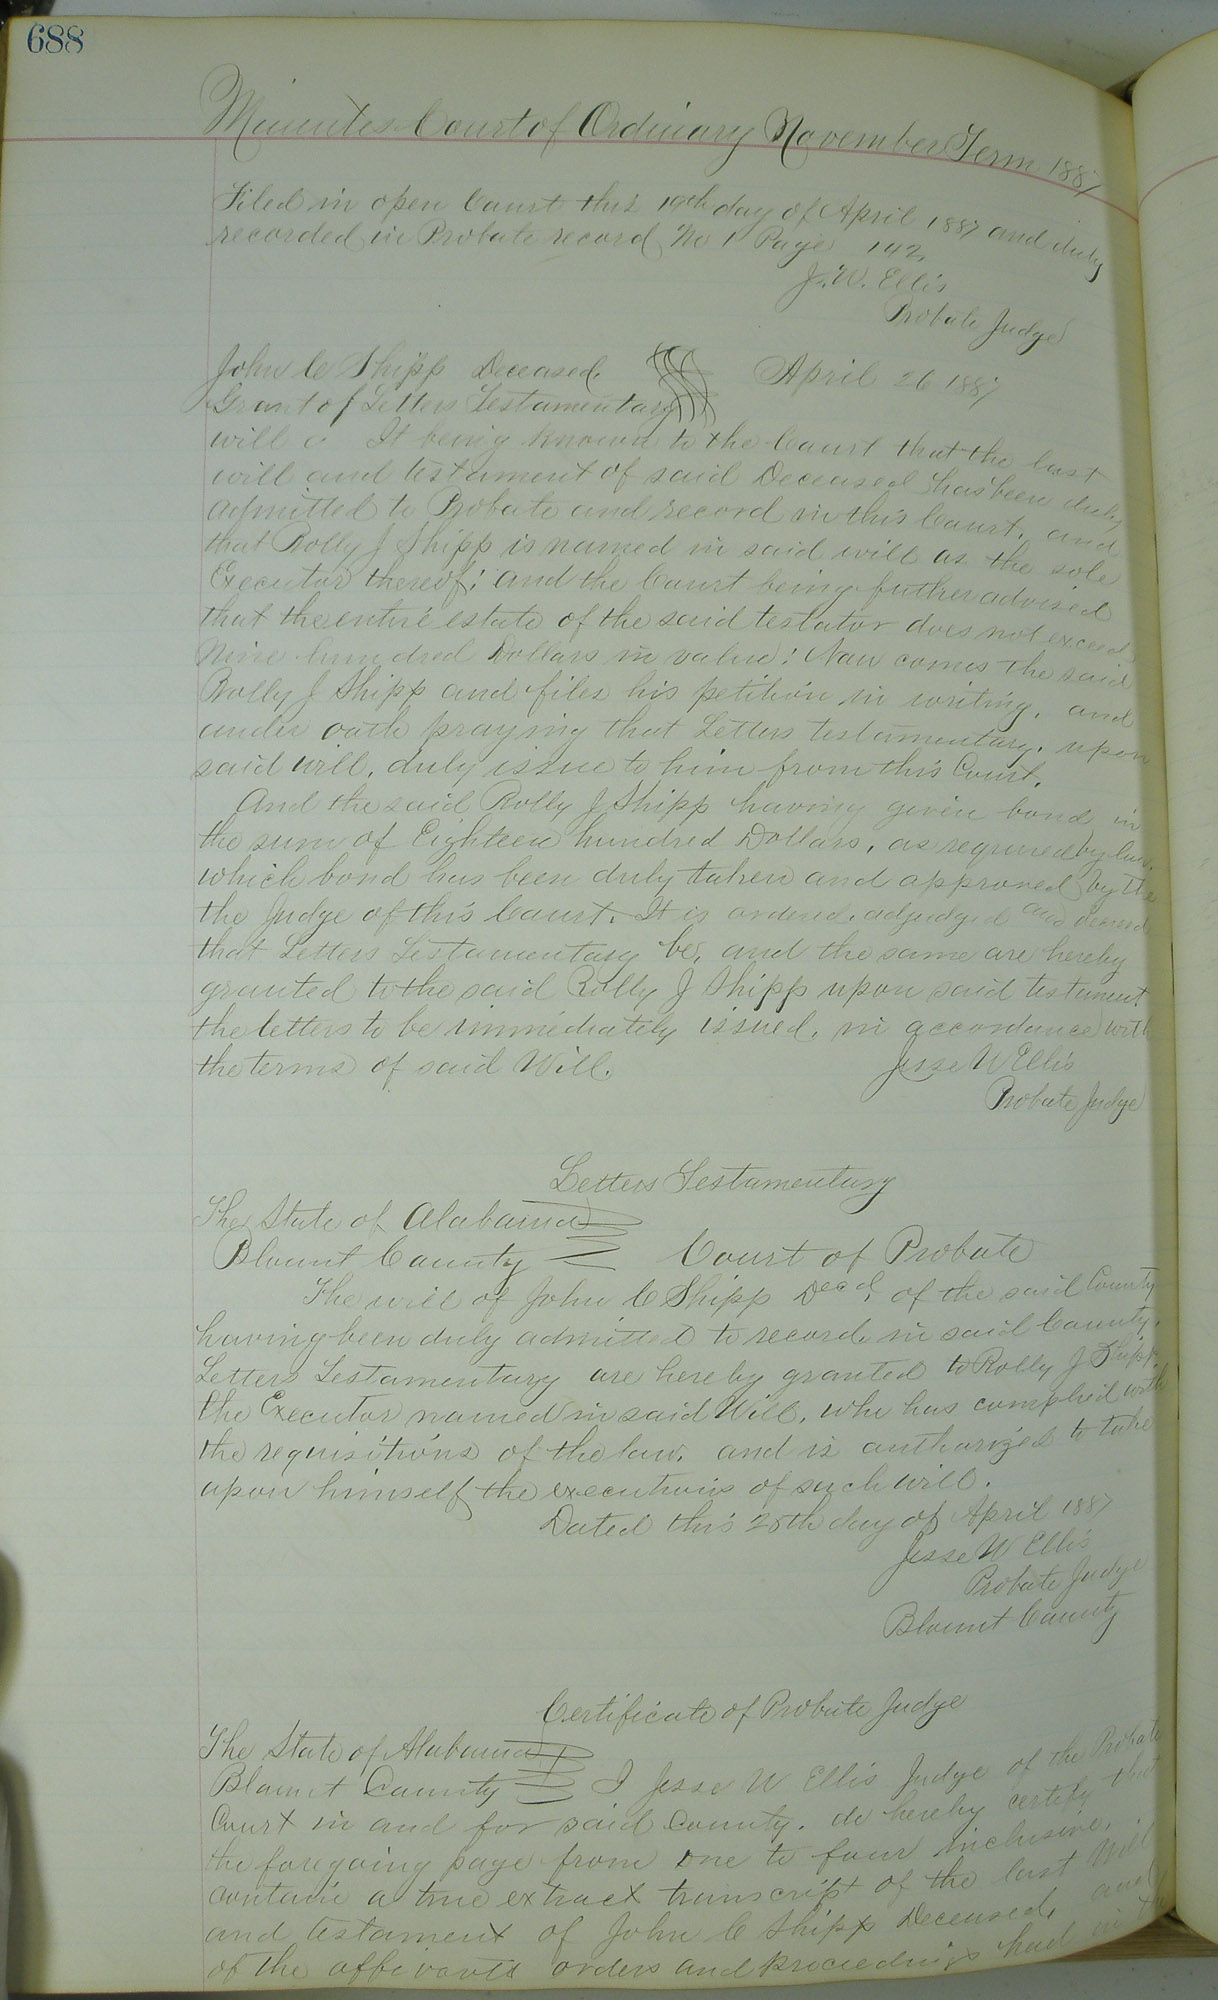 688
Minutes Court of Ordinary November Term 1887
Filed in open Court this 19th day of April 1887 and duly
recorded in Probate record No 1 Page 142.
J. W. Ellis
Probate Judge
John C Shipp Deceased. April 26 1887
Grant of Letters Testamentary
will It being known to the Court that the last
will and testament of said Deceased has been duly
admitted to Probate and record in this Court, and
that Rolly J Shipp is named in said will as the sole
Executor thereof; and the Court being futher advised
that the entire estate of the said testator does not exceed
Nine hundred Dollars in value; Now comes the said
Rolly J Shipp and files his petition in writing, and
under oath praying that Letters testamentary, upon
said will, duly issue to him from this Court.
And the said Rolly J Shipp having given bond in
the sum of Eighteen hundred Dollars, as required by law,
which bond has been duly taken and approved by the
the Judge of this Court. It is ordered, adjudged and decreed
that Letters Testamentary be, and the same are hereby
granted to the said Rolly J Shipp upon said testament
the letters to be immediately issued, in accordance with
the terms of said Will.
Jesse W Ellis
Probate Judge
Letters Testamentary
The State of Alabama
Blount County Court of Probate
The will of John C Shipp Decd. of the said County
having been duly admitted to record in said County.
Letters Testamentary are hereby granted to Rolly J Shipp,
the Executor named in said Will, who has complied with
the requisitions of the law, and is authorized to take
upon himself the executions of such will.
Dated this 26th day of April 1887
Jesse W Ellis
Probate Judge
Blount County
Certificate of Probate Judge
The State of Alabama
Blount County I Jesse W Ellis Judge of the Probate
Court in and for said County. do hereby certify that
the foregoing page from one to four inclusive,
contain a true extract transcript of the last Will
and testament of John C Shipp Deceased, and
of the orders and proceedings had in the